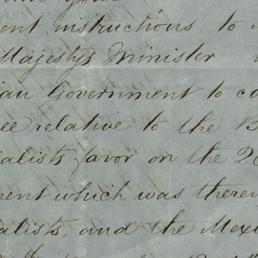 ent instructions to
Majesty's Minister
ian Government to co
ee relative to the B
ialists favor on the 2
ment which was therei
alists, and the Mexi